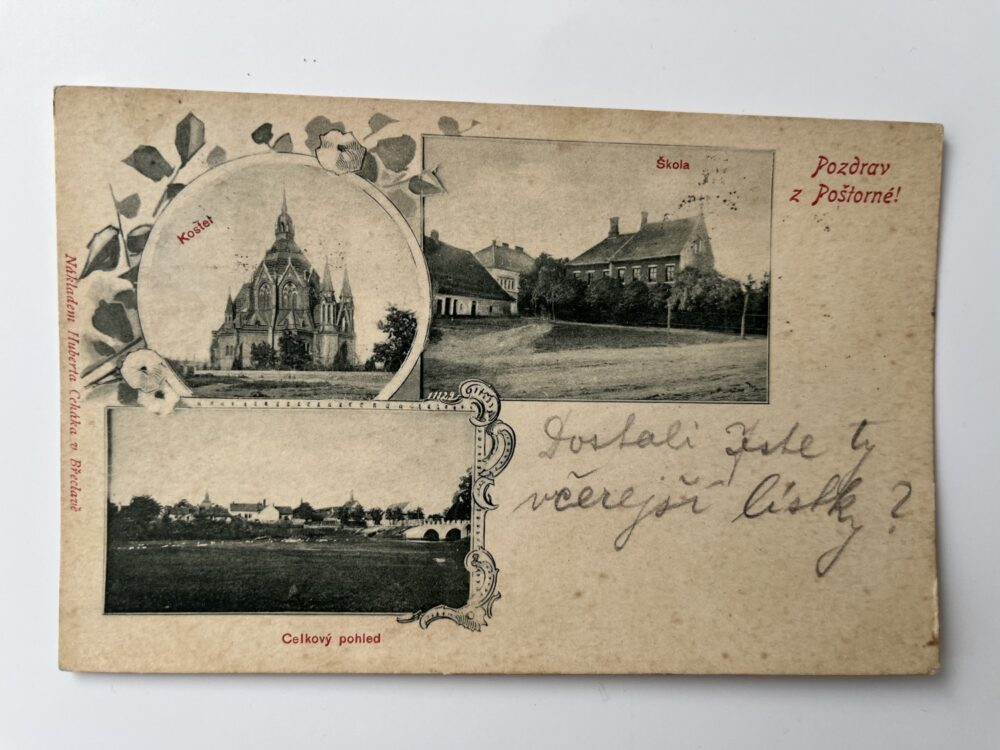 Kostel
Škola
Pozdrav
z Poštorné!
Nákladem Huberta Ceháka v Břeclavě
11129
Celkový pohled
Dostali Jste ty
včerejší lístky?